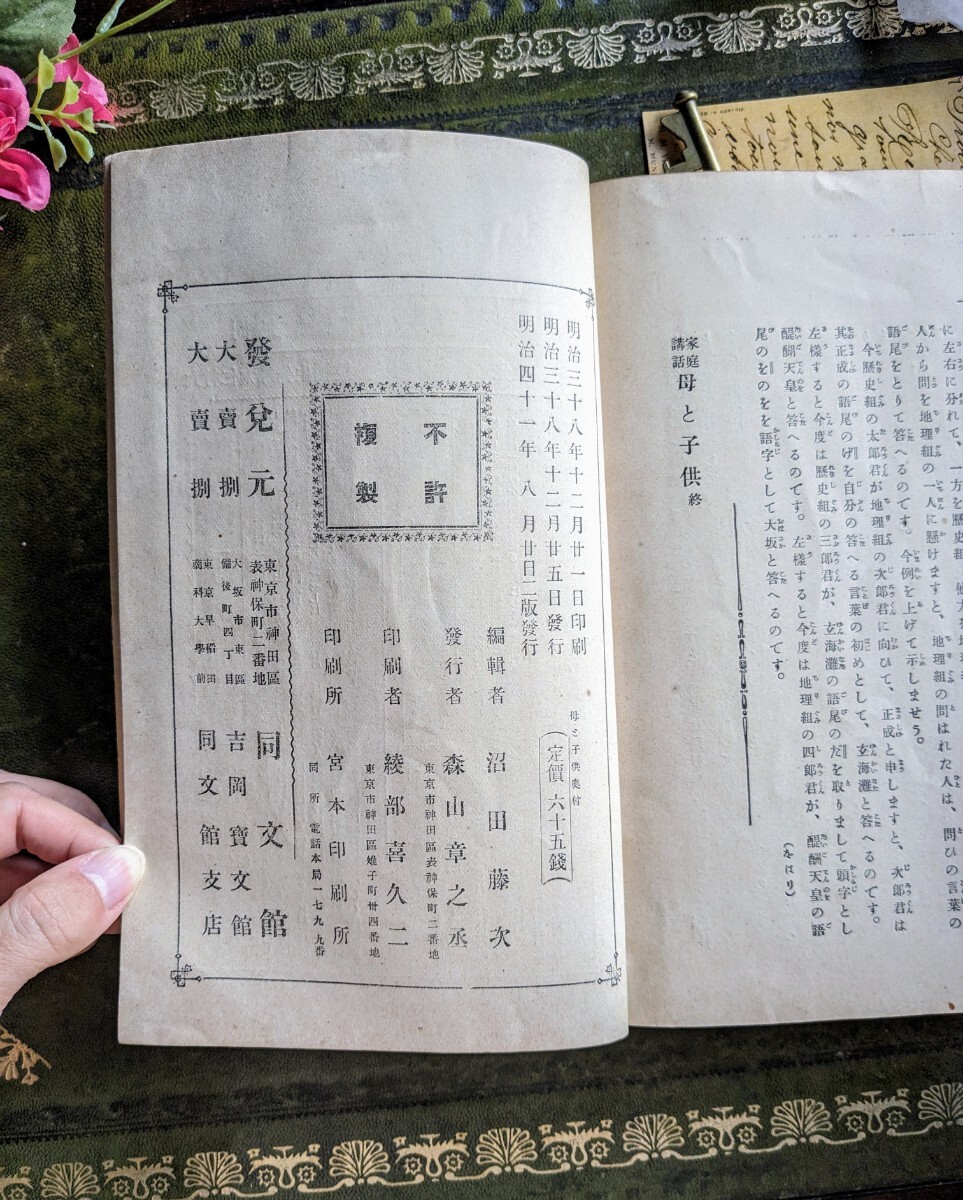 に左右に分れて、一方を歴史組
人から問を地理組の一人に懸けますと、地理組の問はれた人は、問ひの言葉の
語尾をとりて答へるのです。今例を上げて示しませう。
今歴史組の太郎君が地理組の次郎君に向ひて、正成と申しますと、次郎君は
其正成の語尾のげを自分の答へる言葉の初めとして、玄海灘と答へるのです。
左樣すると今度は歴史組の三郎君が、玄海灘の語尾のだを取りまして頭字とし
醍醐天皇と答へるのです。左樣すると今度は地理組の四郎君が、醍醐天皇の語
尾のをのをを語字として大坂と答へるのです。
(をはり)
家庭講話 母と子供 終
明治三十八年十二月廿一日印刷
明治三十八年十二月廿五日發行
明治四十一年八月廿日二版發行
母と子供奥付
(定價六十五錢)
不許
複製
編輯者 沼田藤次
發行者 森山章之丞
東京市神田區表神保町二番地
印刷者 綾部喜久二
東京市神田區雉子町卅四番地
印刷所 宮本印刷所
同所 電話本局一七九九番
發兌元 東京市神田區表神保町二番地 同文館
大賣捌 大坂市東區備後町四丁目 吉岡寶文館
大賣捌 東京早稲田商科大學前 同文館支店